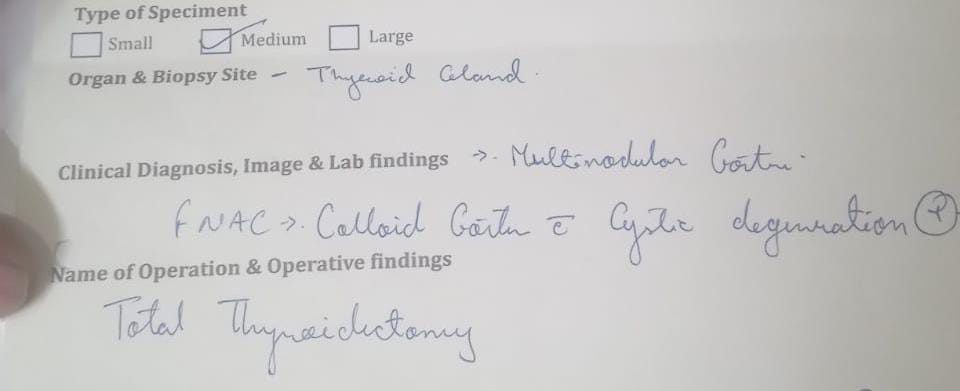 Type of Speciment
Small Medium Large
Organ & Biopsy Site - Thyroid Gland.
Clinical Diagnosis, Image & Lab findings →. Multinodular Goitre.
FNAC →. Colloid Goitre c̄ Cystic degeneration
Name of Operation & Operative findings
Total Thyroidectomy